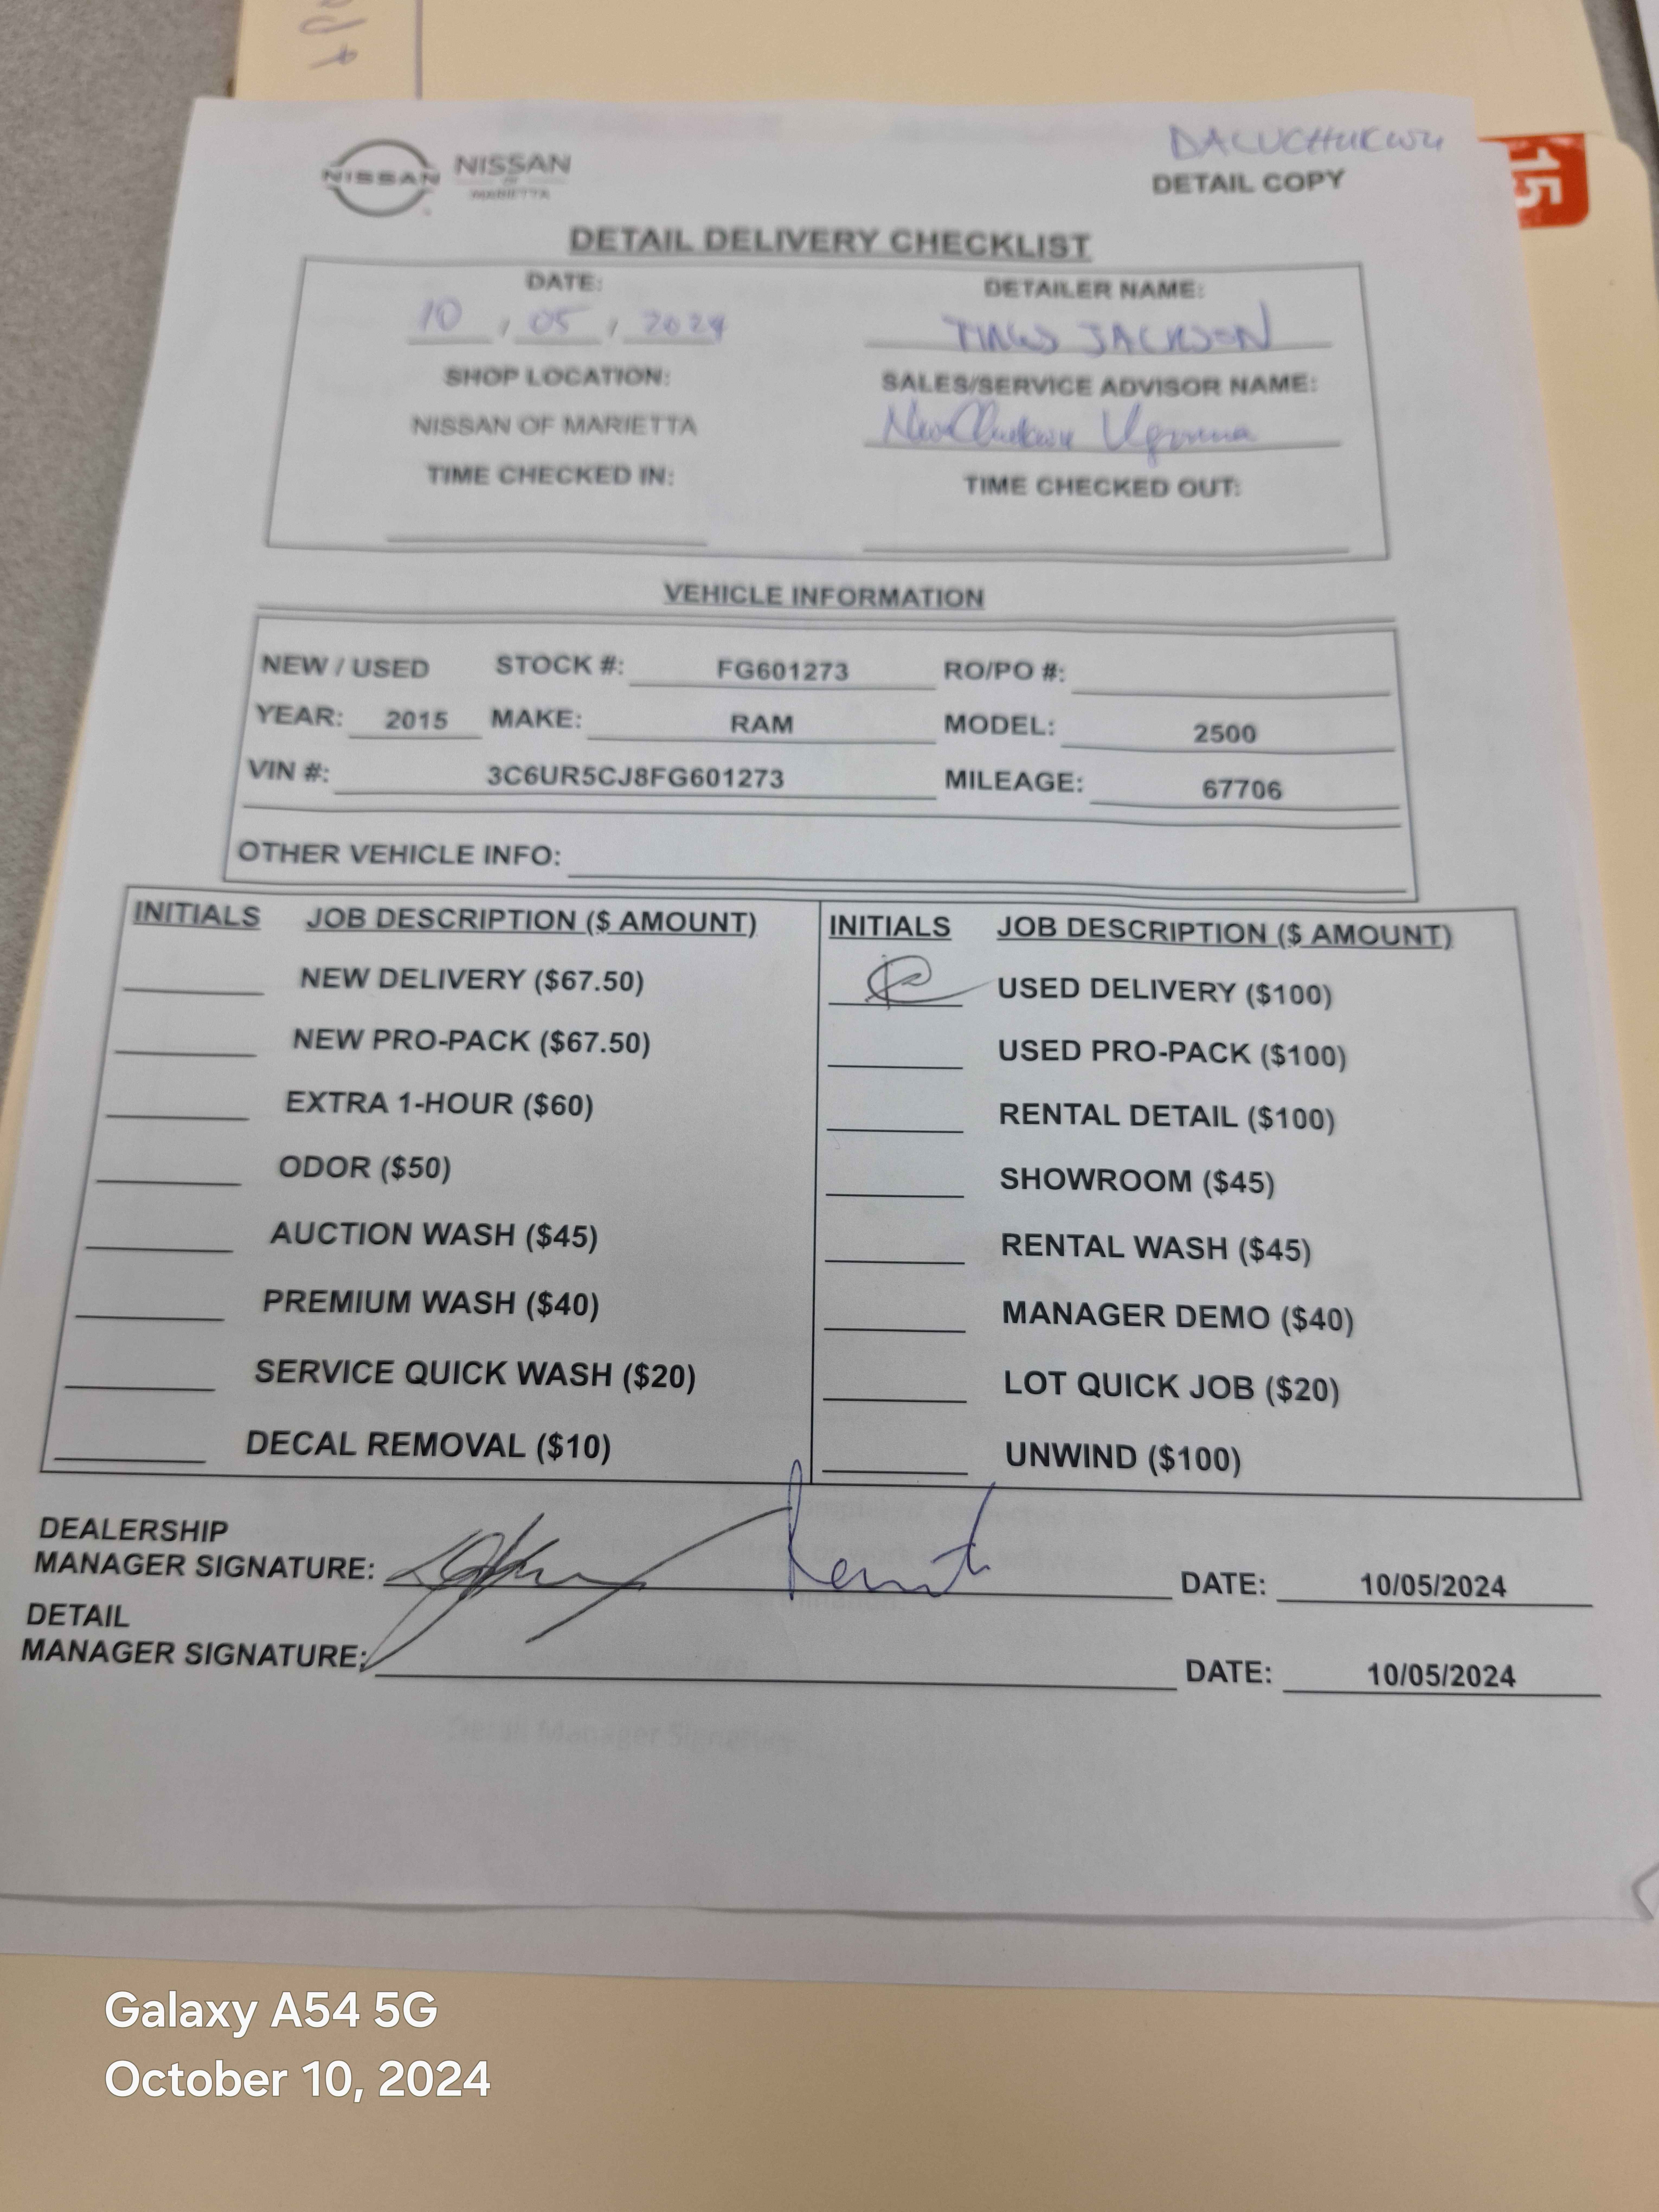 DALUCHUKWU
NISSAN NISSAN
OF
MARIETTA
DETAIL COPY
15
DETAIL DELIVERY CHECKLIST
DATE: DETAILER NAME:
10 / 05 / 2024 JACKSON
SHOP LOCATION: SALES/SERVICE ADVISOR NAME:
NISSAN OF MARIETTA
TIME CHECKED IN: TIME CHECKED OUT:
VEHICLE INFORMATION
NEW / USED STOCK #: FG601273 RO/PO #:
YEAR: 2015 MAKE: RAM MODEL: 2500
VIN #: 3C6UR5CJ8FG601273 MILEAGE: 67706
OTHER VEHICLE INFO:
INITIALS JOB DESCRIPTION ($ AMOUNT) INITIALS JOB DESCRIPTION ($ AMOUNT)
NEW DELIVERY ($67.50) USED DELIVERY ($100)
NEW PRO-PACK ($67.50) USED PRO-PACK ($100)
EXTRA 1-HOUR ($60) RENTAL DETAIL ($100)
ODOR ($50) SHOWROOM ($45)
AUCTION WASH ($45) RENTAL WASH ($45)
PREMIUM WASH ($40) MANAGER DEMO ($40)
SERVICE QUICK WASH ($20) LOT QUICK JOB ($20)
DECAL REMOVAL ($10) UNWIND ($100)
DEALERSHIP
MANAGER SIGNATURE: DATE: 10/05/2024
DETAIL
MANAGER SIGNATURE: DATE: 10/05/2024
Detail Manager Signature
Galaxy A54 5G
October 10, 2024